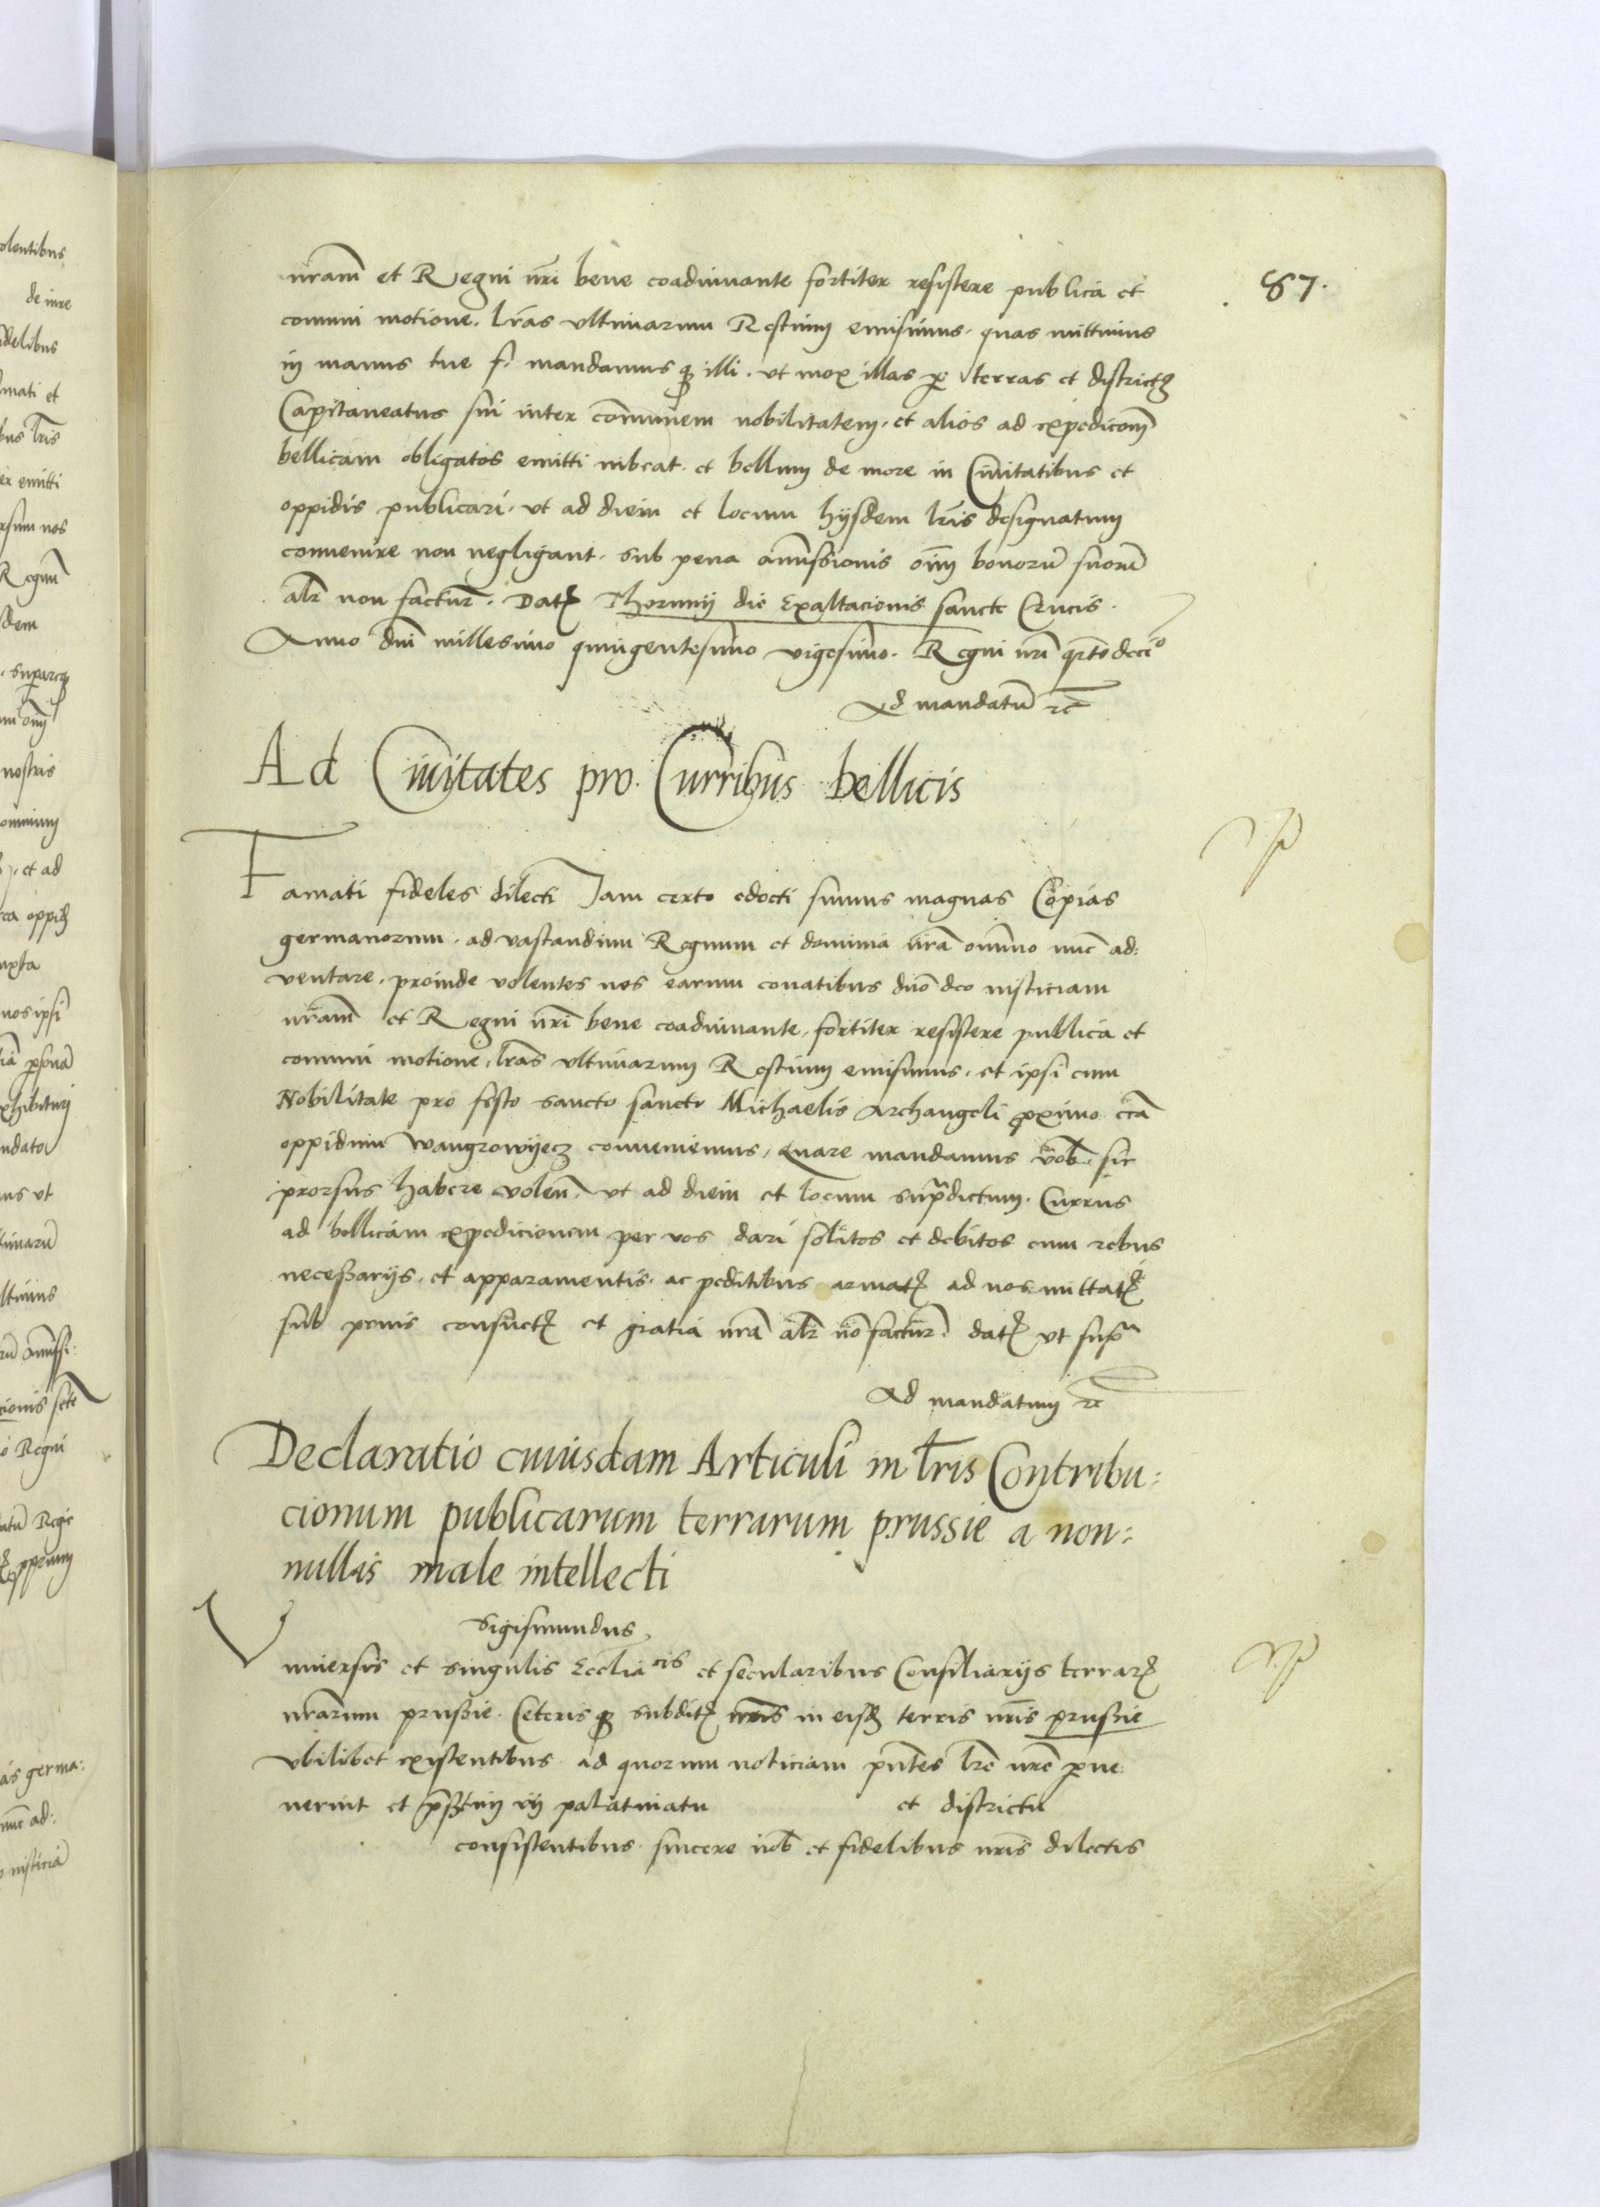 87.
nram̃ et Regni nri bene coadiuuante fortiter resistere publica et
comuni motione. lras vltimarum Restium emisimus. quas mittimus
in manus tue f. mandamus q3 illi. vt mox illas p terras et districtus
Capitaneatus sui inter communem nobilitatem. et alios ad expedicom̃
bellicam obligatos emitti iubeat. et bellum de more in Ciuitatibus et
oppidis publicari. vt ad diem et locum hijsdem lris designatum
conuenire non negligant. sub pena amissionis oim̃ bonorũ suorũ
alr̃ non facturi. Dat Thorunij die Exaltacionis sancte Crucis.
Anno dni millesimo quingentesimo vigesimo. Regni nri q̃rtodecio
Ad mandatũ rc̃
Ad Ciuitates pro. Curribus bellicis
Famati fideles dilecti Jam certo edocti sumus magnas Copias
germanorum. ad vastandum Regnum et dominia nrã omnino nũc ad:
ventare. proinde volentes nos earum conatibus dno deo iusticiam
nram̃ et Regni nri bene coadiuuante. fortiter resistere publica et
comuni motione. lras vltimarum Restium emisimus. et ipsi cum
Nobilitate pro festo sancto sancti Michaelis Archangeli proximo circa
oppidum Wangrowyecz conueniemus. Quare mandamus vob. sic
prorsus habere volen. vt ad diem et locum supradictum. Currus
ad bellicam expedicionem per vos dari solitos et debitos cum rebus
necessarijs. et apparamentis. ac peditibus armat ad nos mittat
sub penis consuet et gratia nra alr̃ nõ factur. dat vt supra
Ad mandatum rc̃
Declaratio cuiusdam Articuli in lris Contribu:
cionum publicarum terrarum prussie a non:
nullis male intellecti
Sigismundus
Vniuersis et singulis Eccliãcis et secularibus Consiliarijs terrar
nrarum prussie. Ceteris q3 subdit nris in eisd terris nris prussie
vbilibet existentibus ad quorum noticiam pntes lre nre perue
nerint et prstim in palatinatu et districtu
consistentibus. sincere nob et fidelibus nris dilectis